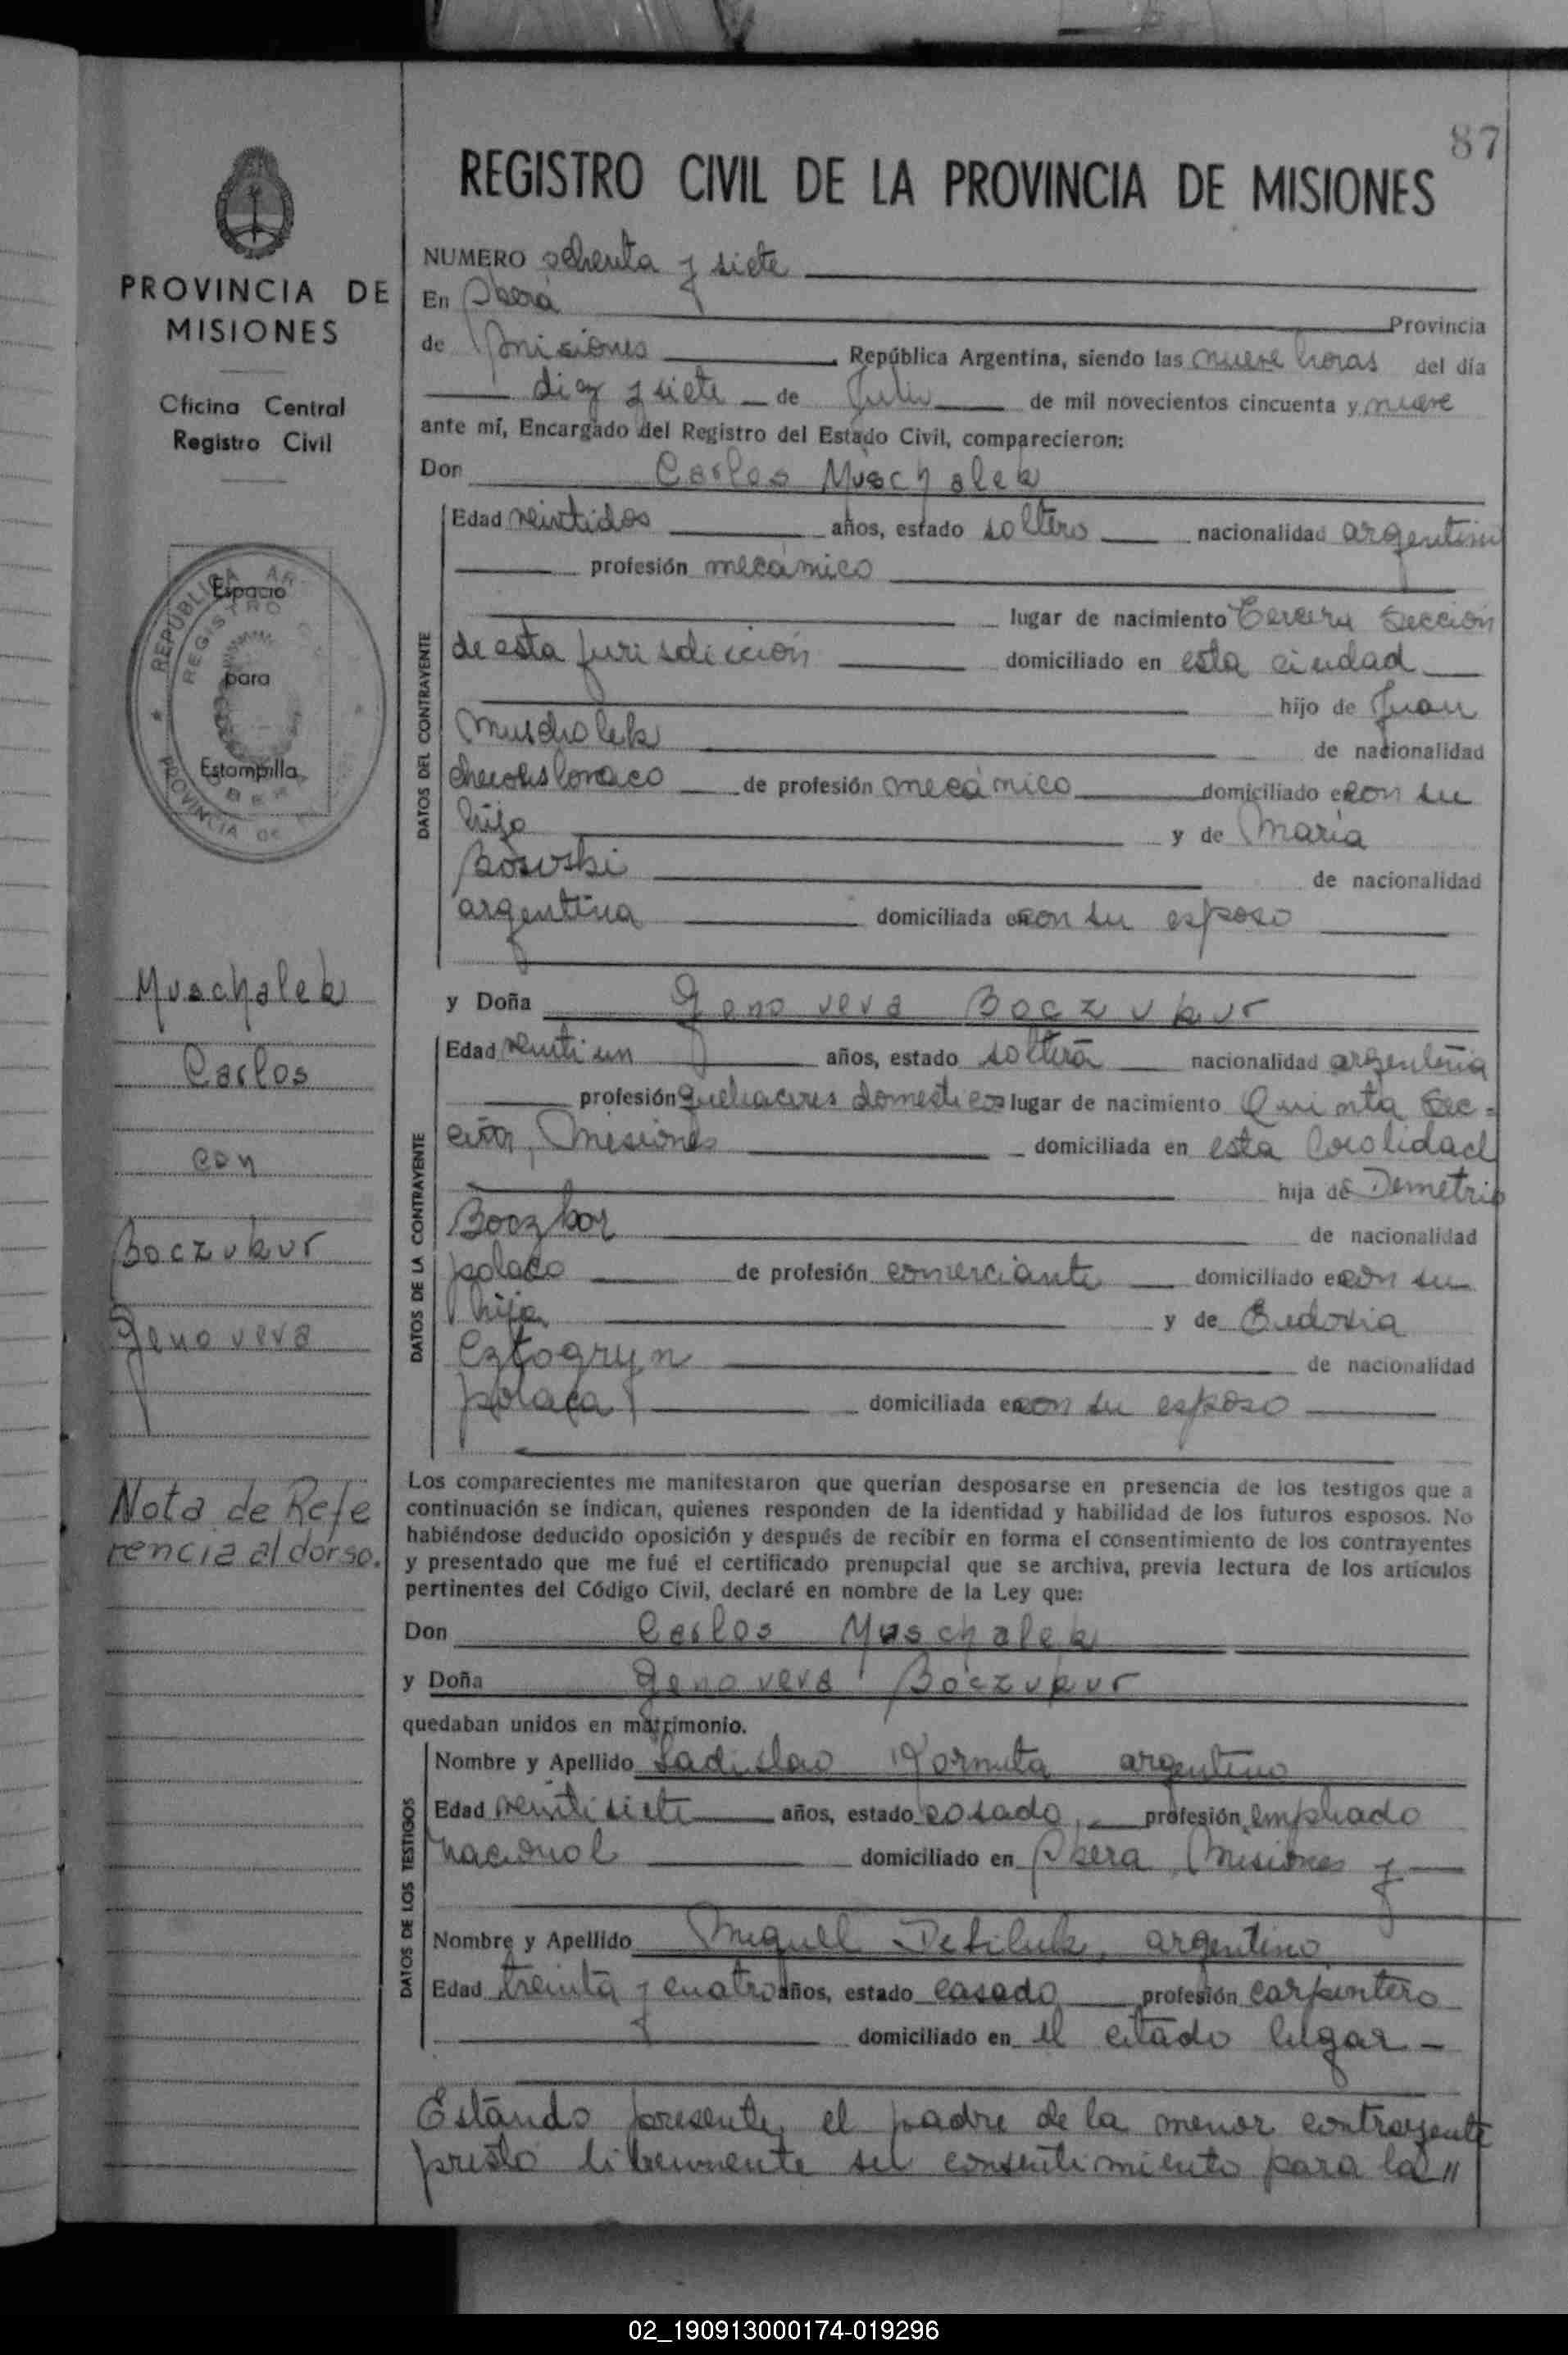 87
REGISTRO CIVIL DE LA PROVINCIA DE MISIONES
PROVINCIA DE
MISIONES
Oficina Central
Registro Civil
REPÚBLICA AR
REGISTRO
Espacio
para
Estampilla
OBERA
PROVINCIA DE
Muschalek
Carlos
con
Boczukur
Genoveva
Nota de Refe
rencia al dorso.
NUMERO ochenta y siete
En Oberá Provincia
de Misiones República Argentina, siendo las nueve horas del día
diez y siete de Julio de mil novecientos cincuenta y nueve
ante mí, Encargado del Registro del Estado Civil, comparecieron:
Don Carlos Muschalek
DATOS DEL CONTRAYENTE
Edad veintidos años, estado soltero nacionalidad argentino
profesión mecánico
lugar de nacimiento tercera Sección
de esta jurisdicción domiciliado en esta ciudad
hijo de Juan
Muschalek de nacionalidad
checoslovaco de profesión mecánico domiciliado con su
hijo y de María
de nacionalidad
argentina domiciliada con su esposo
y Doña Genoveva Boczukur
DATOS DE LA CONTRAYENTE
Edad veintiun años, estado soltera nacionalidad argentina
profesión quehaceres domesticos lugar de nacimiento Quinta Sec-
ción, Misiones domiciliada en esta localidad
hija de Demetrio
Boczkor de nacionalidad
polaco de profesión comerciante domiciliado con su
hija y de Eudoxia
Cztogryn de nacionalidad
polaca domiciliada con su esposo
Los comparecientes me manifestaron que querían desposarse en presencia de los testigos que a
continuación se indican, quienes responden de la identidad y habilidad de los futuros esposos. No
habiéndose deducido oposición y después de recibir en forma el consentimiento de los contrayentes
y presentado que me fué el certificado prenupcial que se archiva, previa lectura de los artículos
pertinentes del Código Civil, declaré en nombre de la Ley que:
Don Carlos Muschalek
y Doña Genoveva Boczukur
quedaban unidos en matrimonio.
DATOS DE LOS TESTIGOS
Nombre y Apellido Ladislao Kornuta argentino
Edad veintisiete años, estado casado, profesión empleado
nacional domiciliado en Obera Misiones y
Nombre y Apellido Miguel argentino
Edad treinta y cuatro años, estado casado profesión carpintero
domiciliado en el citado lugar -
Estando presente, el padre de la menor contrayente
prestó libremente su consentimiento para la "
02_190913000174-019296